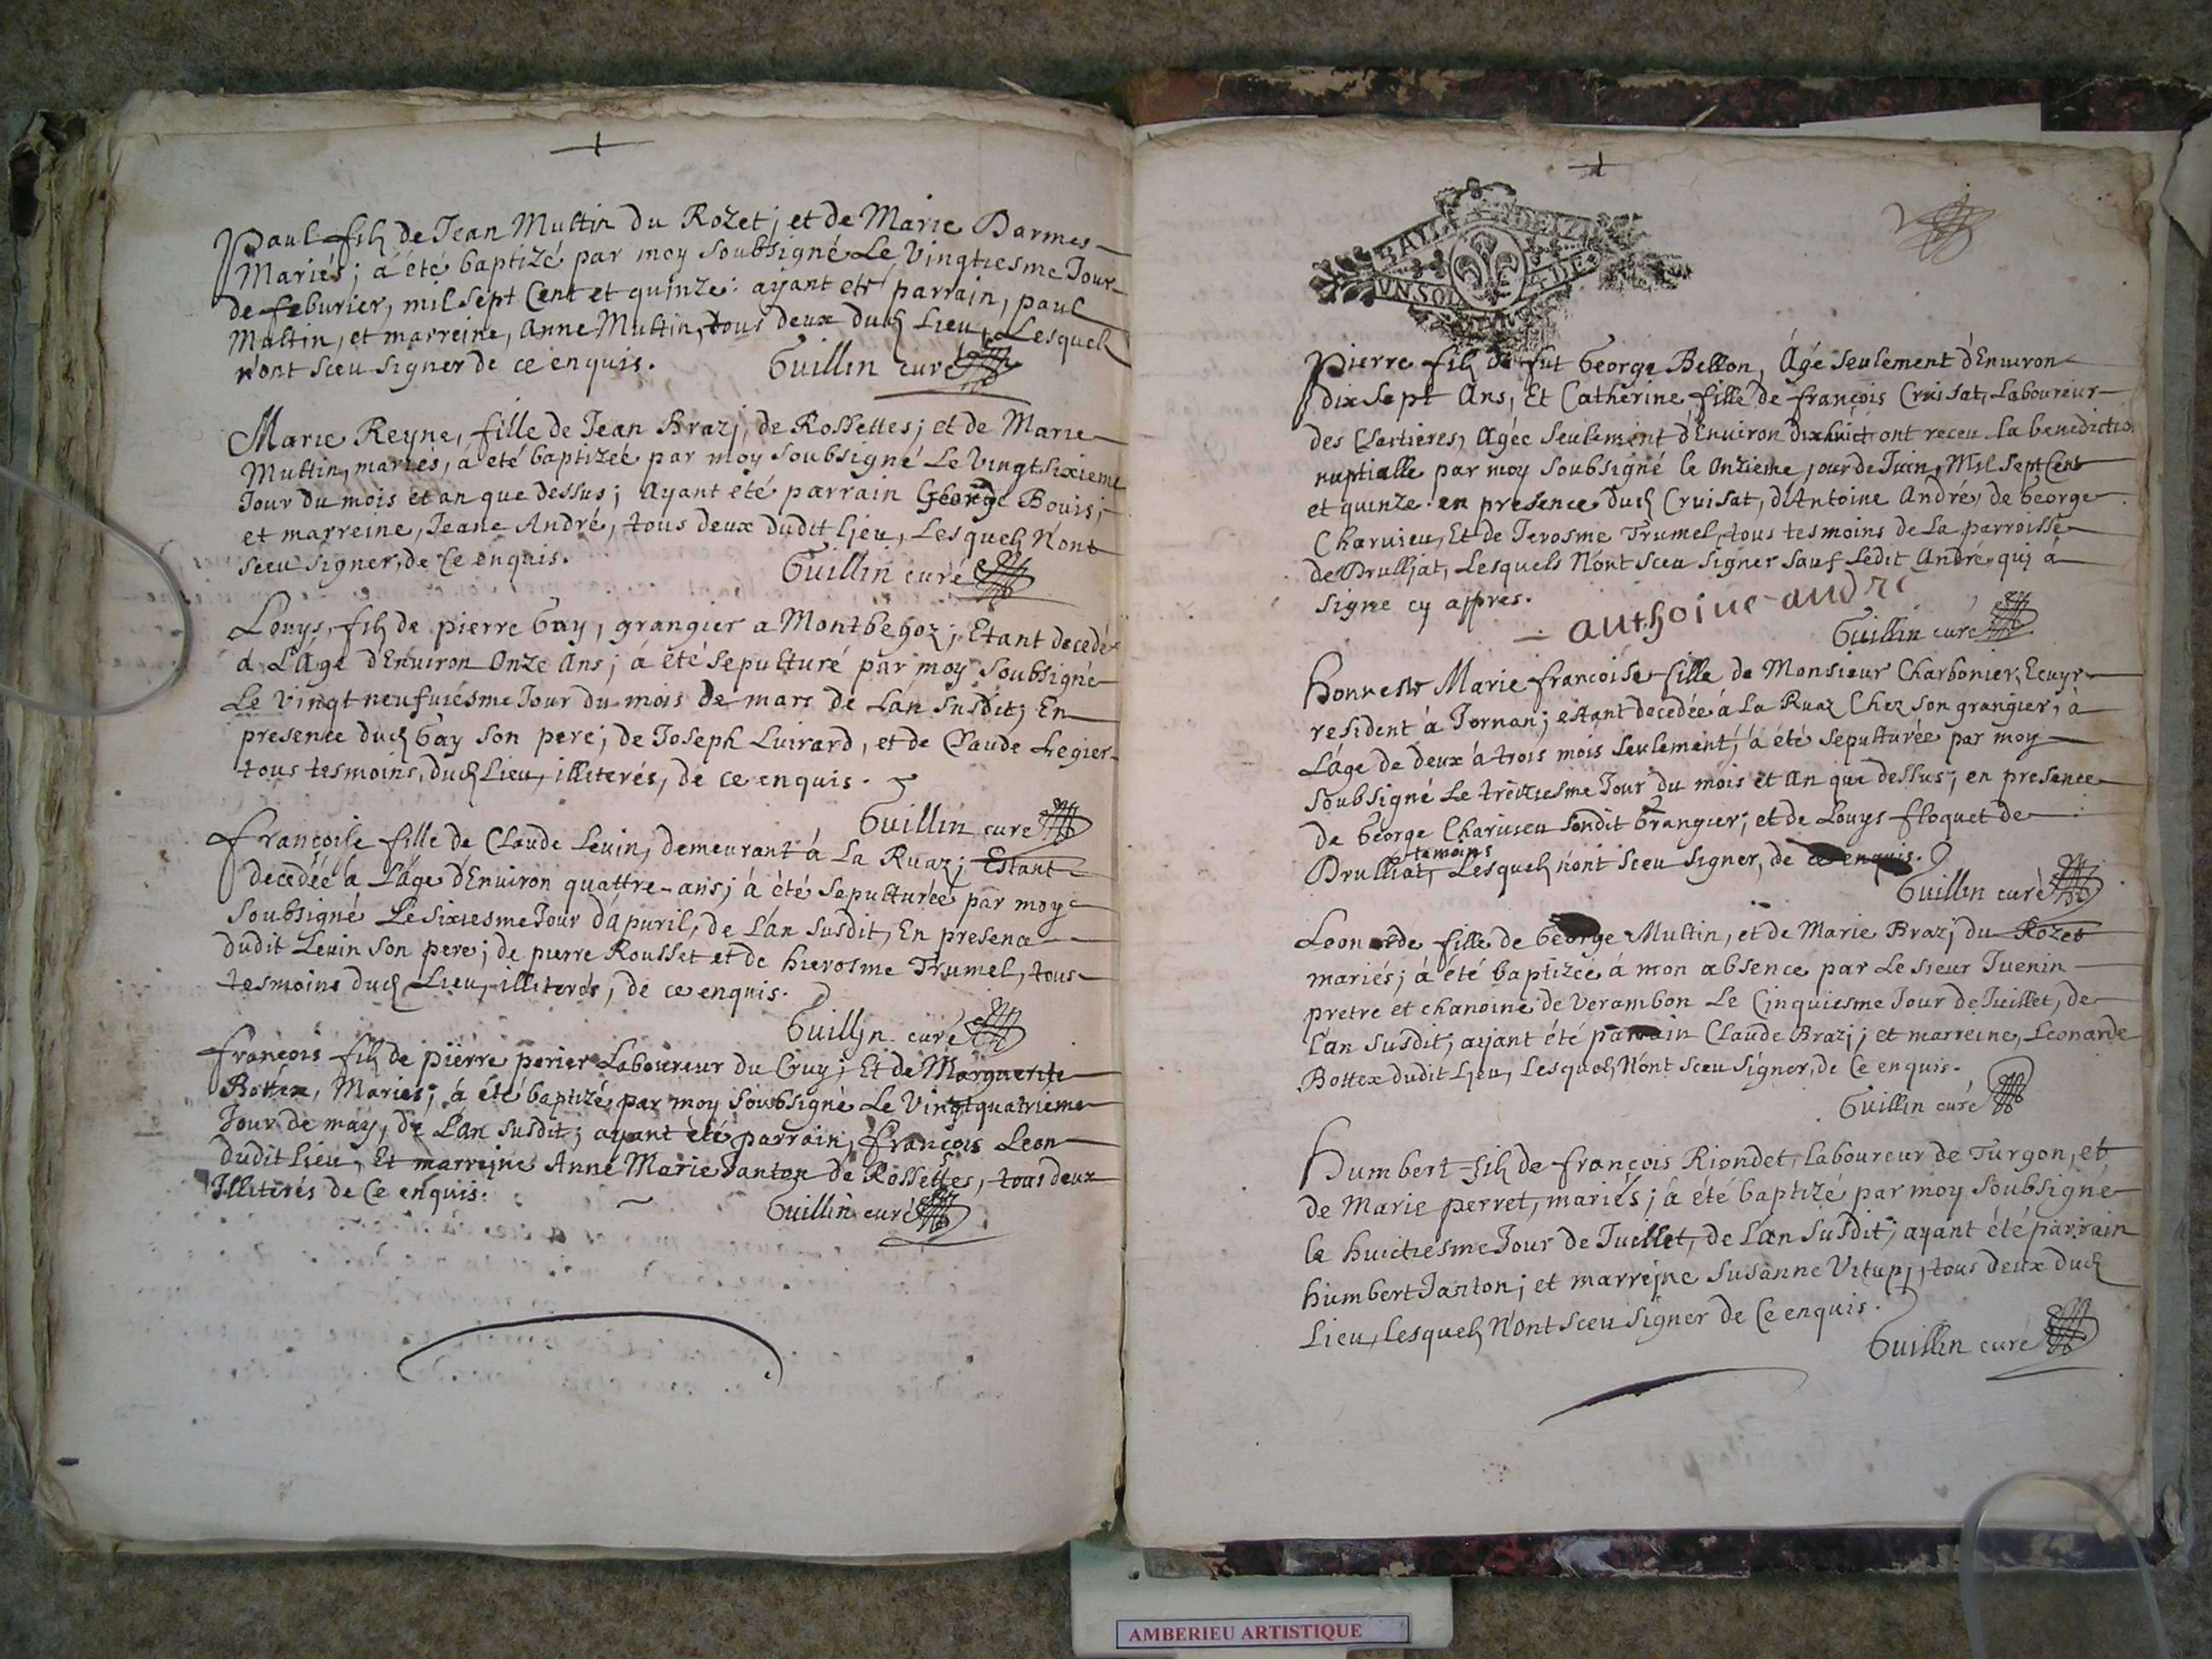 Paul fils de Jean Multin du Rozet; et de Marie Darmes
Mariés; á été baptizé par moy soubsigné Le Vingtiesme Jour
de feburier, mil sept Cent et quinze: ayant eté parrain, paul
Multin, et marreine, Anne Multin, tous deux dud Lieu, Lesquels
n'ont sceu signer de ce enquis.
Guillin curé
Marie Reyne, fille de Jean Brazj, de Rossettes; et de Marie
Multin, mariés, á eté baptizée par moy soubsigné Le vingtsixieme
Jour du mois et an que dessus; Ayant été parrain George Bouis;
et marreine, Jeane André, tous deux dudit ljeu, Lesquels N'ont
sceu signer, de Ce enquis.
Guillin curé
Louys, fils de pierre Gay, grangier a Montbegoz; Etant decedé
a L'Age d'Enuiron Onze Ans; á été sepulturé par moy soubsigné
Le Vingt neufuiésme Jour du mois de mars de L'án susdit; En
presence dud Gay son pere; de Joseph Luirard, et de Claude Legier
tous tesmoins, dud Lieu, illiterés, de ce enquis.
Guillin cure
françoise fille de Claude Levin, demeurant á La Ruaz; Estant
decedée a L'áge d'Enuiron quattre-ans; á été sepulturée par moy
soubsigné Le sixiesme Jour d'Apuril, de L'án susdit, En presence
dudit Levin son pere; de pierre Rousset et de hierosme Trumel, tous
tesmoins dud Lieu, illiterés, de ce enquis.
Guillin curé
françois fils de pierre perier Laboureur du Cruy; Et de Marguerite
Bottex, Mariés; á été baptizé par moy soubsigné Le Vingtquatrieme
Jour de may, de L'án susdit; ayant été parrain, françois Leon
dudit Lieu, Et marrejne Anne Marie Janton de Rossettes, tous deux
Illiterés de Ce enquis.
Guillin curé
UN SOL
Pierre fils de fut George Bellon, Agé seulement d'Enuiron
dix sept Ans, Et Catherine, fille de françois Cruisat, Laboureur
des Clartieres, Agée seulement d'Enuiron dixhuict ont receu la benedictio
nuptialle par moy soubsigné le Onzieme jour de Juin, Mil Sept Cent
et quinze: en presence dud Cruisat, d'Antoine André, de George
Charuieu, Et de Jerosme Trumel, tous tesmoins de La parroisse
de Drulljat, Lesquels N'ont sceu signer sauf Ledit André, quj á
signe cy appres.
anthoine andre
Guillin curé
honneste Marie francoise fille de Monsieur Charbonier, Ecuyr
resident á Jornan; estant decedée á La Ruaz Chez son grangier, á
L'áge de deux á trois mois seulement, á été sepulturée par moy
soubsigné Le treiziesme Jour du mois et An que dessus; en presence
de George Charuieu sondit Grangier; et de Louys floquet de
temoins
Drulliat, Lesquels n'ont sceu signer, de ce enquis.
Guillin curé
Leonarde fille de George Multin, et de Marie Brazj du Rozet
mariés; á été baptizée á mon absence par Le sieur Juenin
pretre et chanoine de Verambon Le Cinquiesme Jour de Juillet, de
L'án susdit; ayant été parrain Claude Brazj; et marreine, Leonarde
Bottex dudit Ljeu, Lesquels N'ont sceu signer, de Ce enquis.
Guillin curé
Humbert fils de françois Riondet, laboureur de Turgon, et
de Marie perret, mariés; á été baptizé par moy soubsigné
le huictiesme Jour de Juillet, de L'an susdit; ayant été parrain
humbert Janton; et marrejne Susanne Vitupj, tous deux dud
Lieu, Lesquels N'ont sceu signer de Ce enquis.
Guillin curé
AMBERIEU ARTISTIQUE